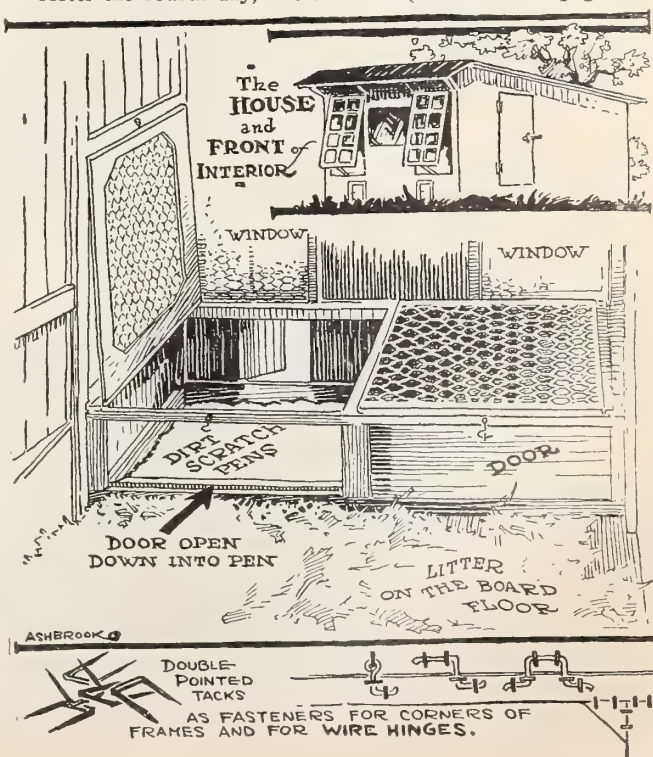 The
HOUSE
and
FRONT of
INTERIOR
WINDOW
WINDOW
DIRT
SCRATCH
PENS
DOOR
DOOR OPEN
DOWN INTO PEN
LITTER
ON THE BOARD
FLOOR
ASHBROOK
DOUBLE-
POINTED
TACKS
AS FASTENERS FOR CORNERS OF
FRAMES AND FOR WIRE HINGES.